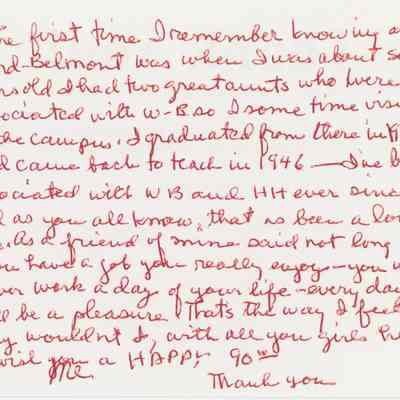 he first time I remember knowing a
rd-Belmont was when I was about se
rs old I had two great aunts who were
sociated with W-B so I some time visi
the campus. I graduated from there in
d came back to teach in 1946 — I've b
sociated with WB and HH ever sinc
d as you all know, that has been a lon
e. As a friend of mine said not long
ou have a job you really enjoy — you w
ver work a day of your life — every day
ll be a pleasure That's the way I feel
y wouldn't I, with all you girls
wish you a HAPPY 90th
me
Thank you